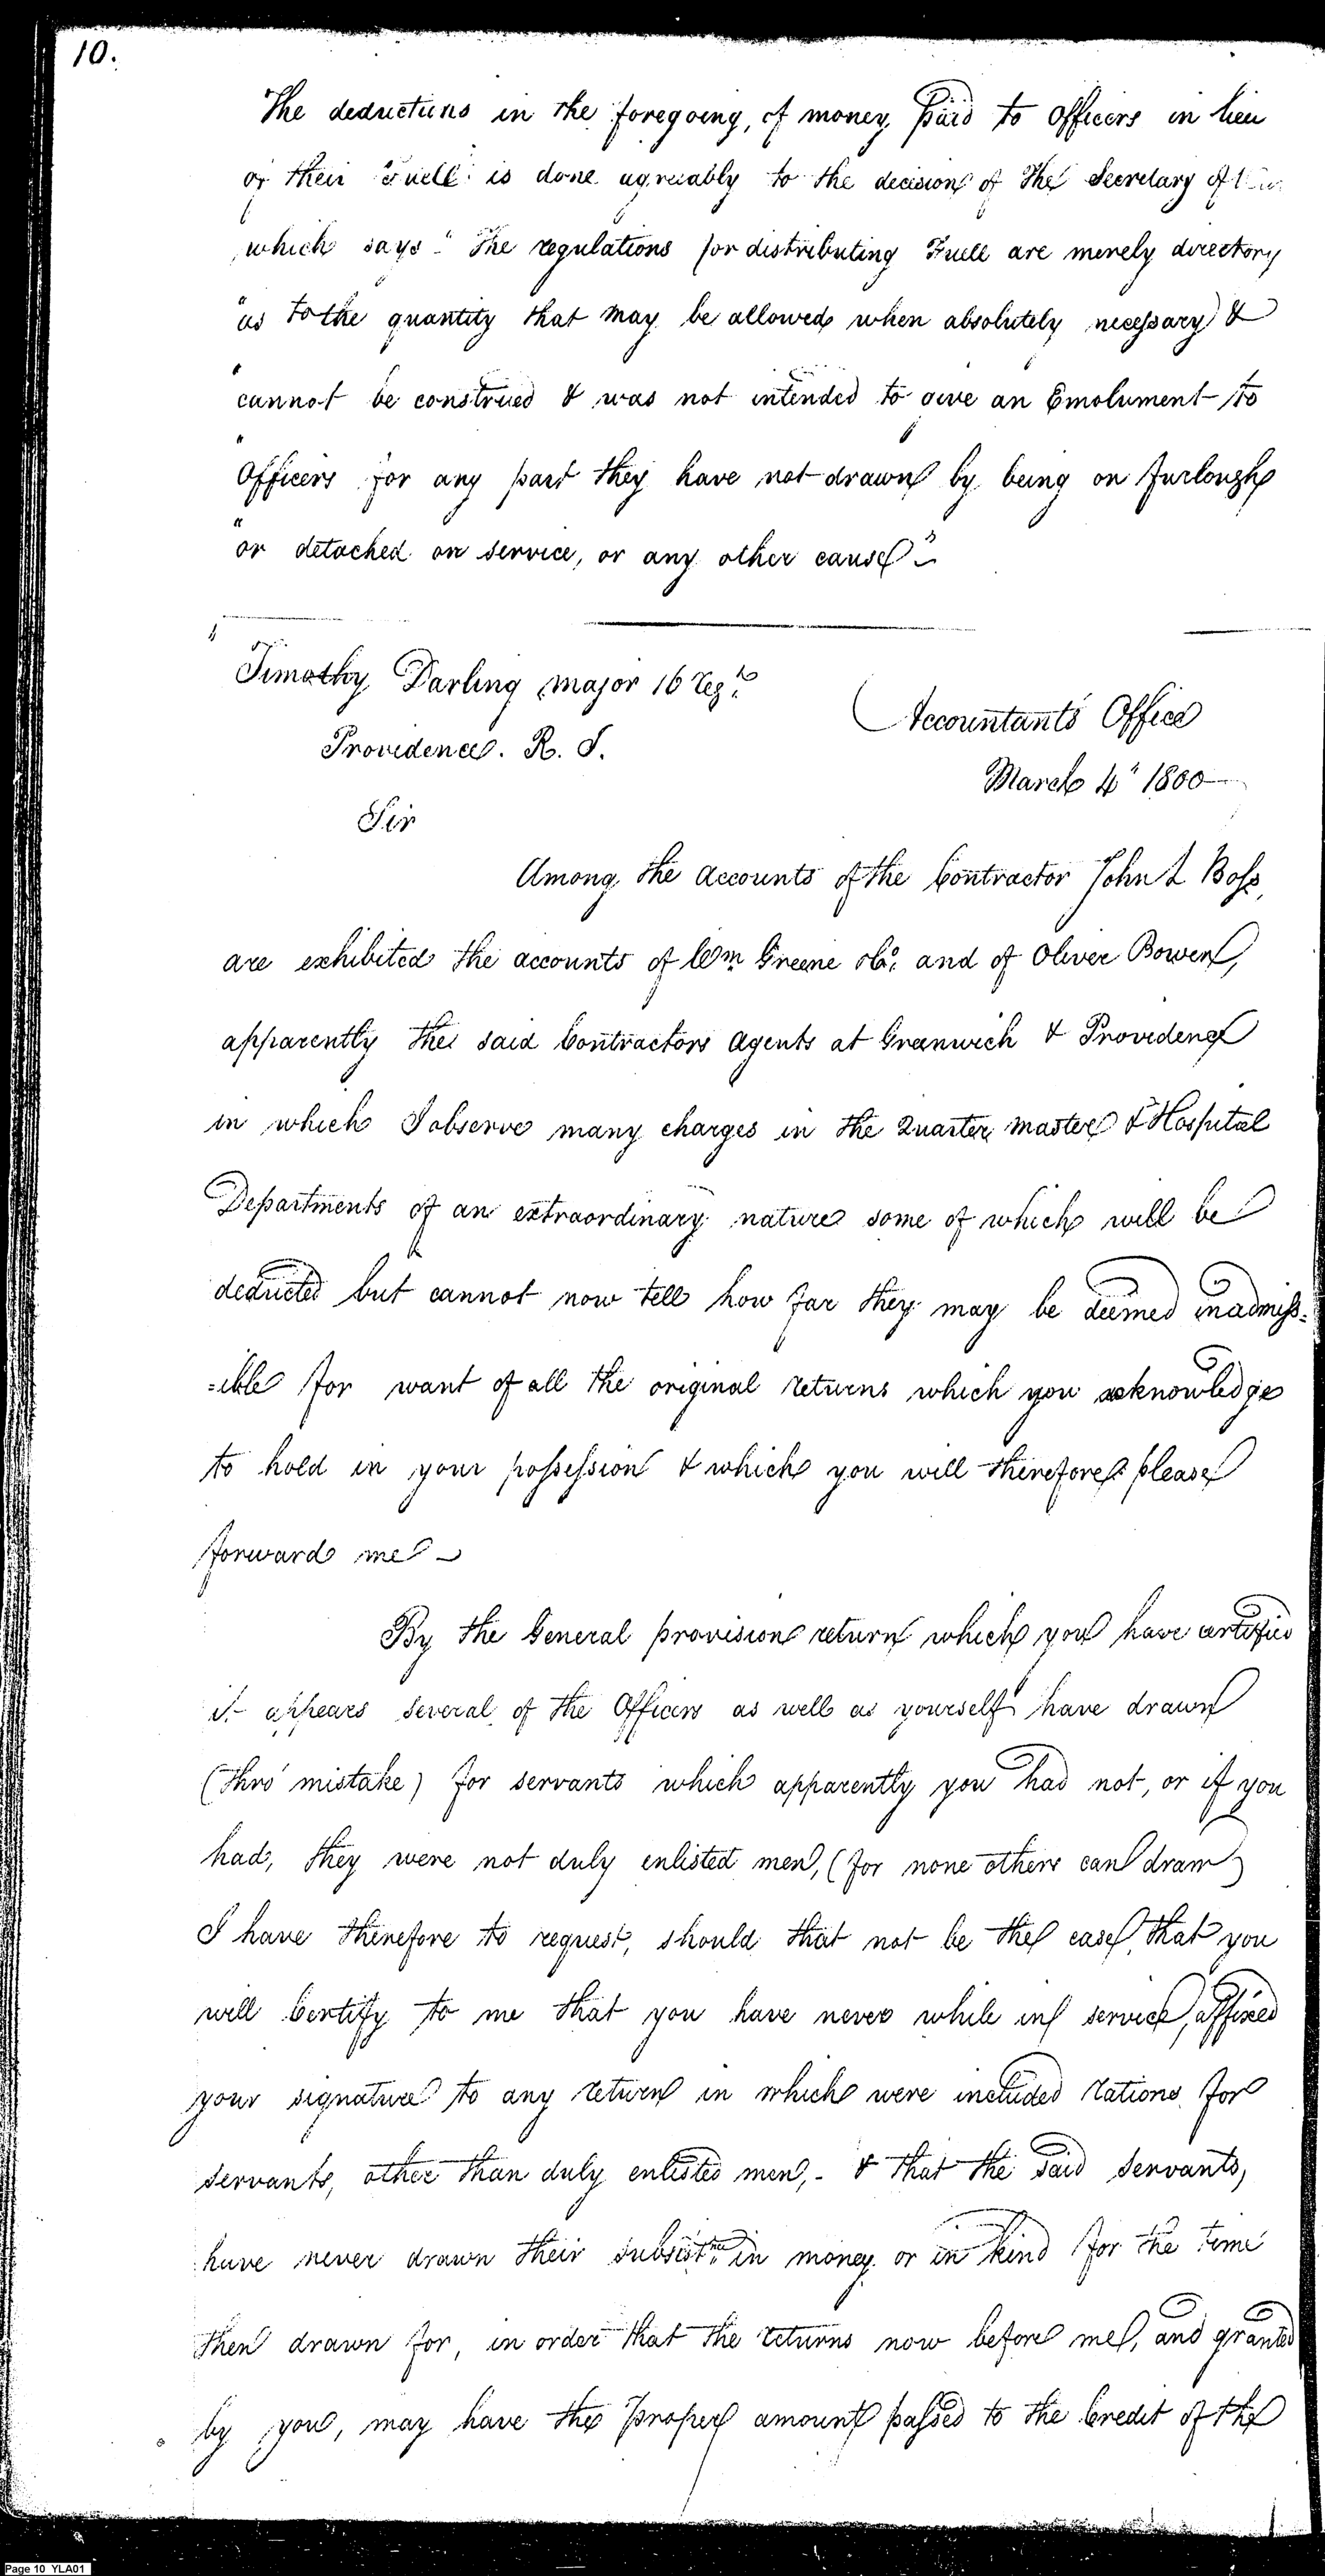 10.
The deductions in the foregoing, of money paid to Officers in lieu
of their Fuell is done agreeably to the decision of The Secretary of War
which says "The regulations for distributing Fuell are merely directory
"as to the quantity that may be allowed when absolutely necessary &
"cannot be construed & was not intended to give an Emolument to
"Officers for any part they have not drawn by being on furlough
"or detached on service, or any other cause"
Timothy Darling major 16 regt.
Providence. R. I.
Accountants Office
March 4" 1800
Sir
Among the accounts of the Contractor John L Boss,
are exhibited the accounts of Wm Greene &Co. and of Oliver Bowen,
apparently the said Contractors agents at Greenwich & Providence
in which I observe many charges in the Quarter master & Hospital
Departments of an extraordinary nature some of which will be
deducted but cannot now tell how far they may be deemed inadmiss=
=ible for want of all the original returns which you acknowledge
to hold in your possession & which you will therefore please
forward me
By the General provision return which you have certified
it appears several of the Officers as well as yourself have drawn
(thro' mistake) for servants which apparently you had not, or if you
had, they were not duly enlisted men, (for none others can draw)
I have therefore to request, should that not be the case, that you
will Certify to me that you have never while in service, affixed
your signature to any return in which were included rations for
servants, other than duly enlisted men,- & that the said servants,
have never drawn their subsistce. in money or in kind for the time
then drawn for, in order that the returns now before me, and granted
by you, may have the proper amount passed to the Credit of the
Page 10 YLA01